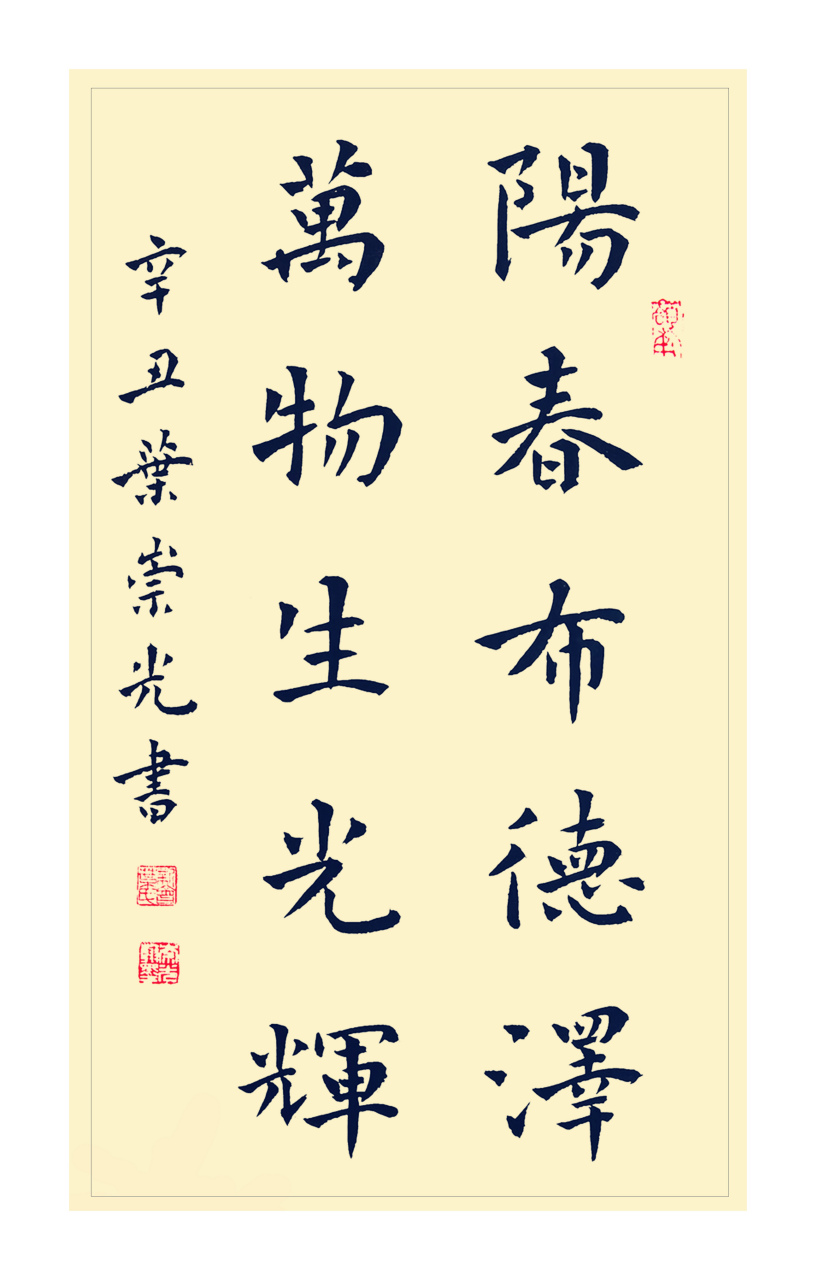 陽春布德澤
萬物生光輝
辛丑葉崇光書